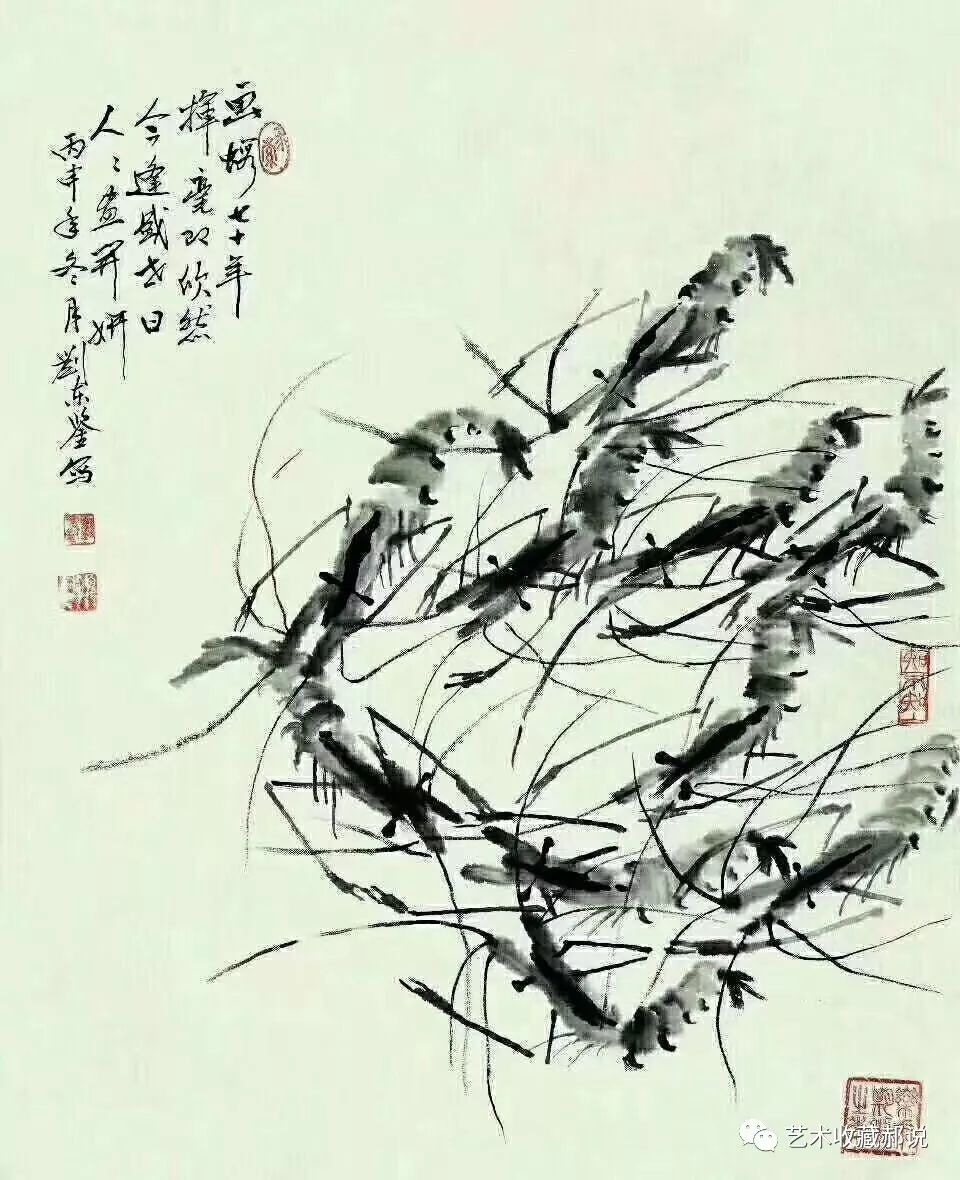 画虾七十年
挥毫即欣然
今逢盛世日
人〻尽开妍
丙申年冬月刘东鉴写
艺术收藏郝说